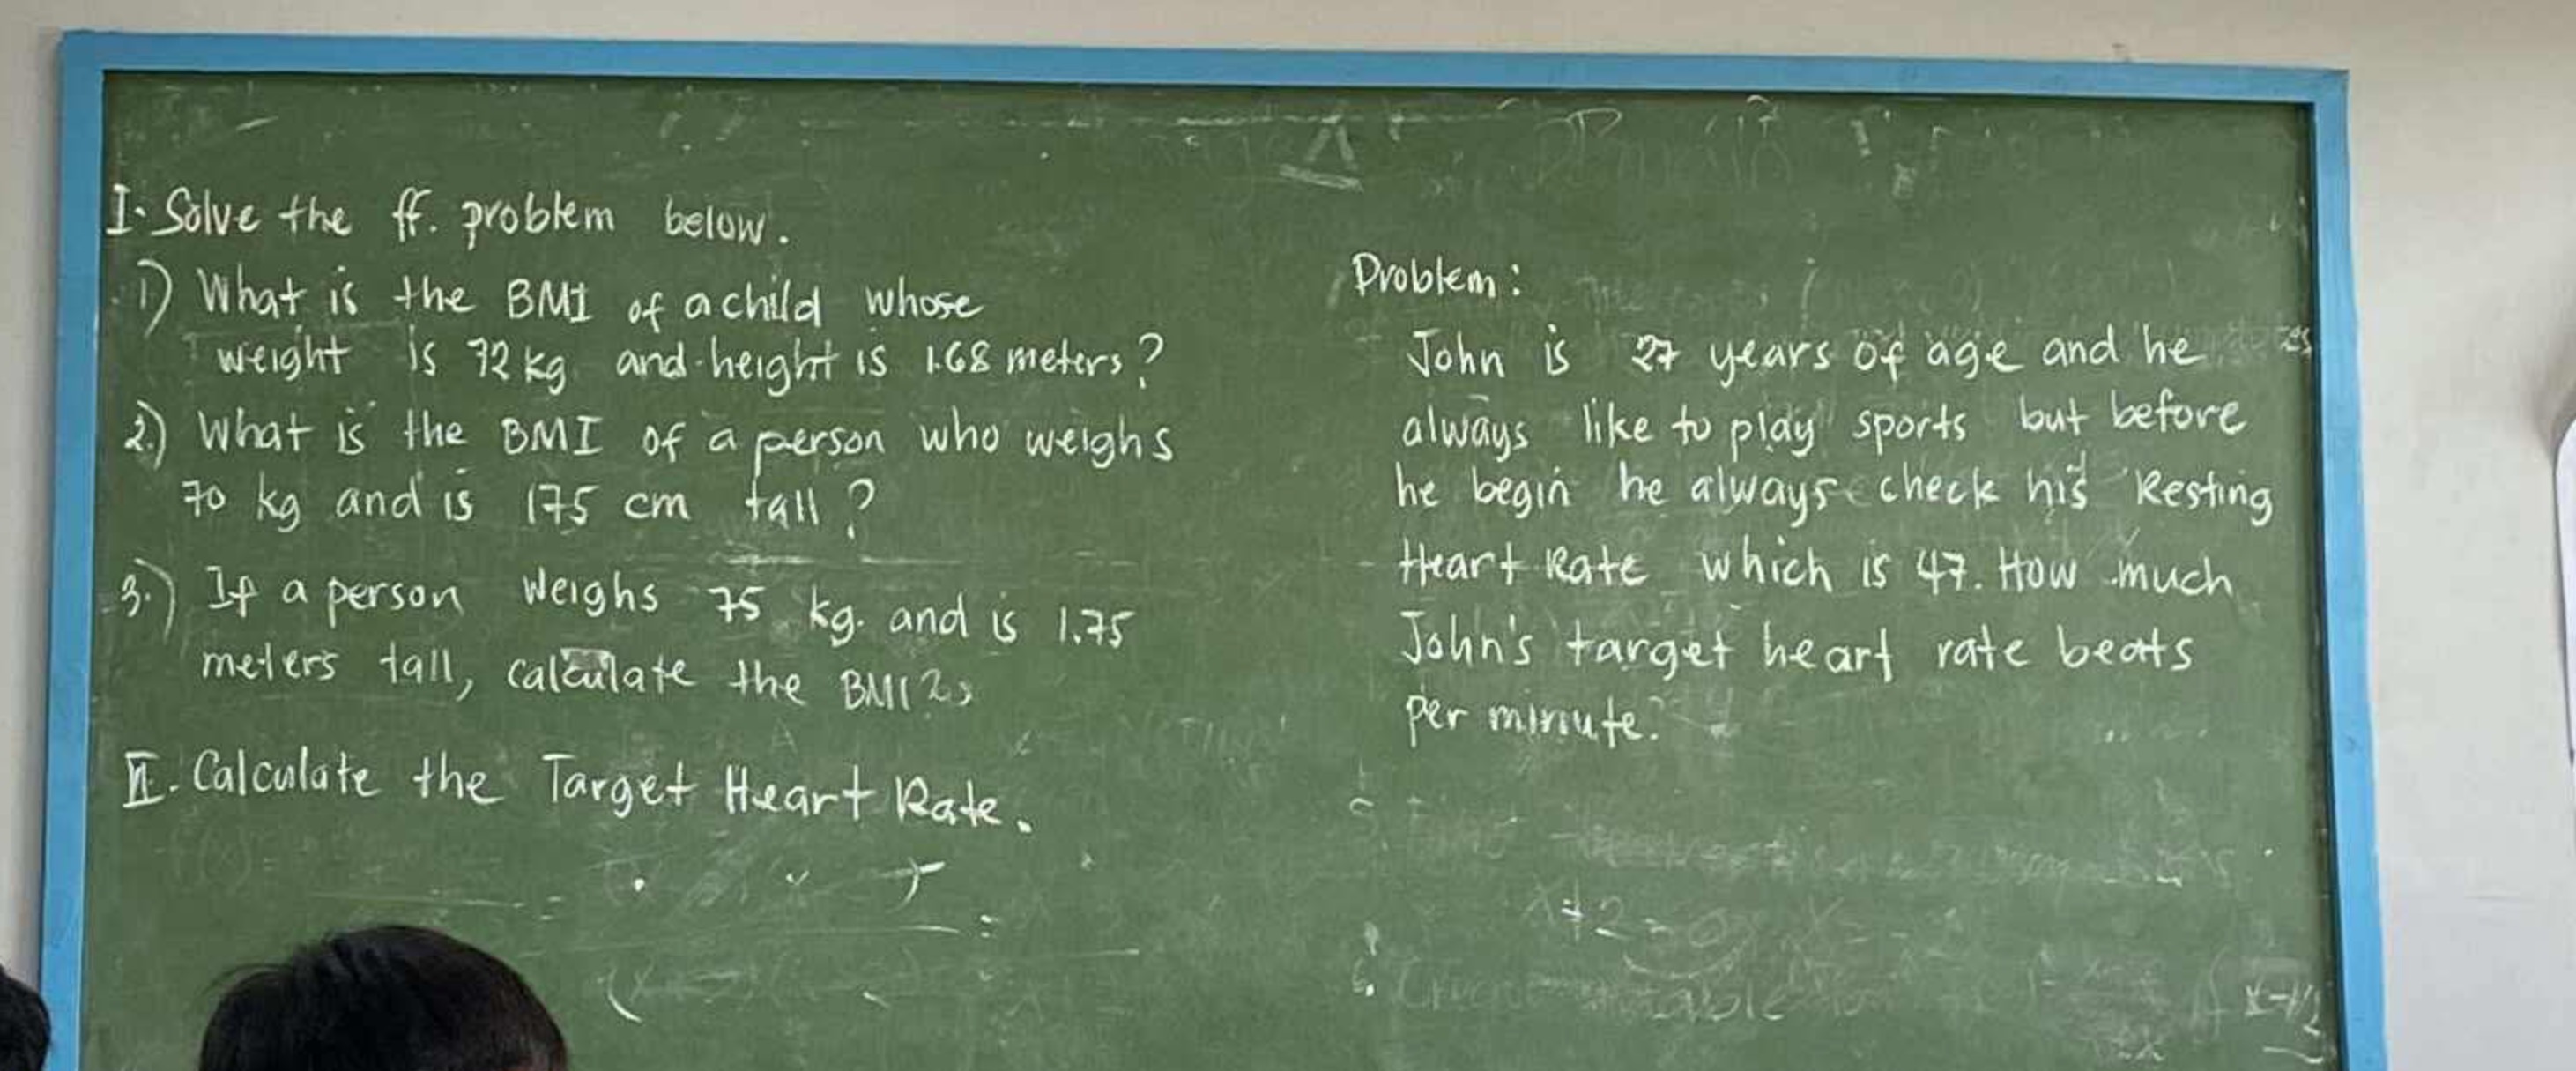 I. Solve the ff. problem below.
1) What is the BMI of a child whose
weight is 72 kg and height is 1.68 meters?
2.) What is the BMI of a person who weighs
70 kg and is 175 cm tall?
3.) If a person weighs 75 kg. and is 1.75
meters tall, calculate the BMI?
II. Calculate the Target Heart Rate.
Problem:
John is 27 years of age and he
always like to play sports but before
he begin he always check his Resting
Heart Rate which is 47. How much
John's target heart rate beats
per minute.